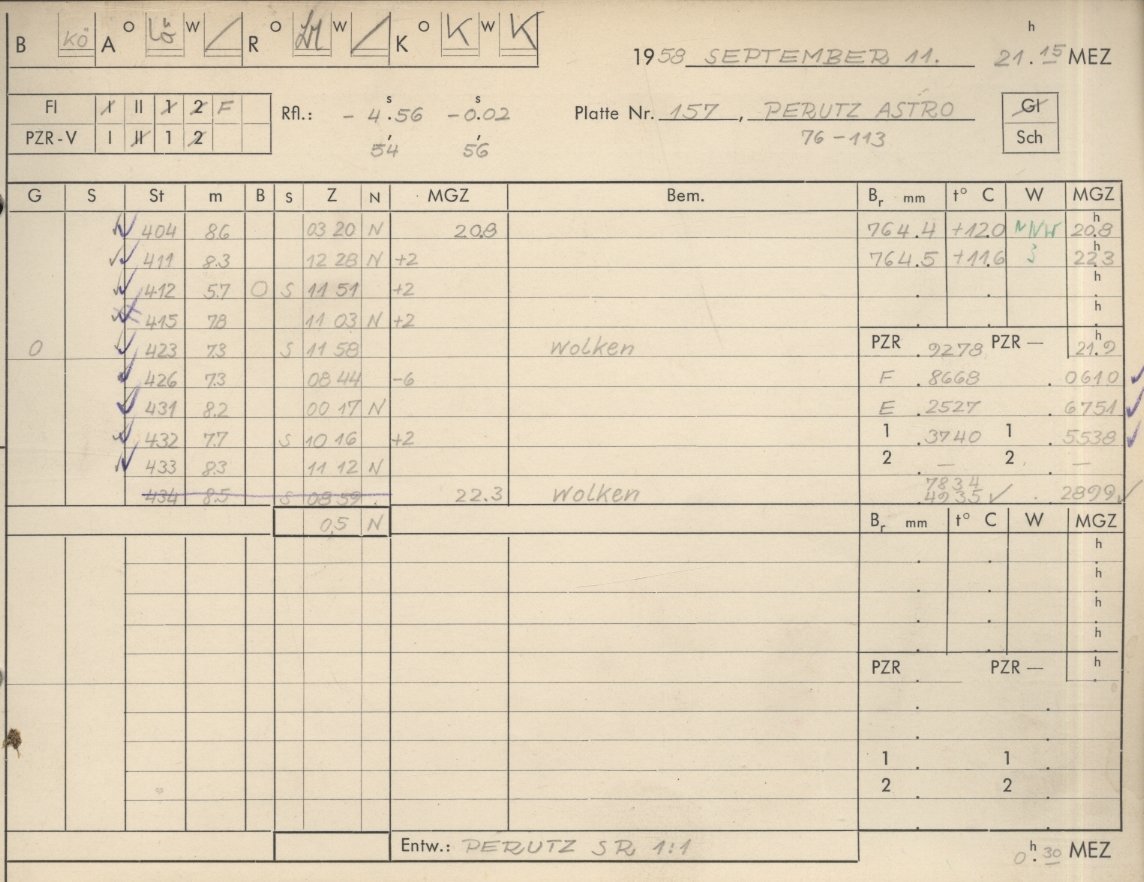 B Kö A O Lö W / R O W / K O K W K
1958 SEPTEMBER 11. 21.15 h MEZ
Fl I II 1 2 F
PZR-V I II 1 2
Rfl.: - 4.56 s -0.02 s
54 56
Platte Nr. 157, PERUTZ ASTRO
76-113
Gl
Sch
G S St m B S Z N MGZ Bem. Br mm t° C W MGZ
404 8.6 03 20 N 20.8 764.4 +12.0 NNW 20.8 h
411 8.3 12 28 N +2 764.5 +11.6 3 22.3 h
412 5.7 O S 11 51 +2 h
415 7.8 11 03 N +2 h
0 423 7.3 S 11 58 Wolken PZR .9278 PZR — 21.9 h
426 7.3 08 44 -6 F .8668 .0610
431 8.2 00 17 N E .2527 .6751
432 7.7 S 10 16 +2 1 .3740 1 .5538
433 8.3 11 12 N 2 — 2 —
434 8.5 S 08 59 22.3 Wolken 7834
4935 .2899
0.5 N Br mm t° C W MGZ
h
h
h
h
PZR PZR — h
1 1
2 2
Entw.: PERUTZ SR 1:1 0.30 h MEZ